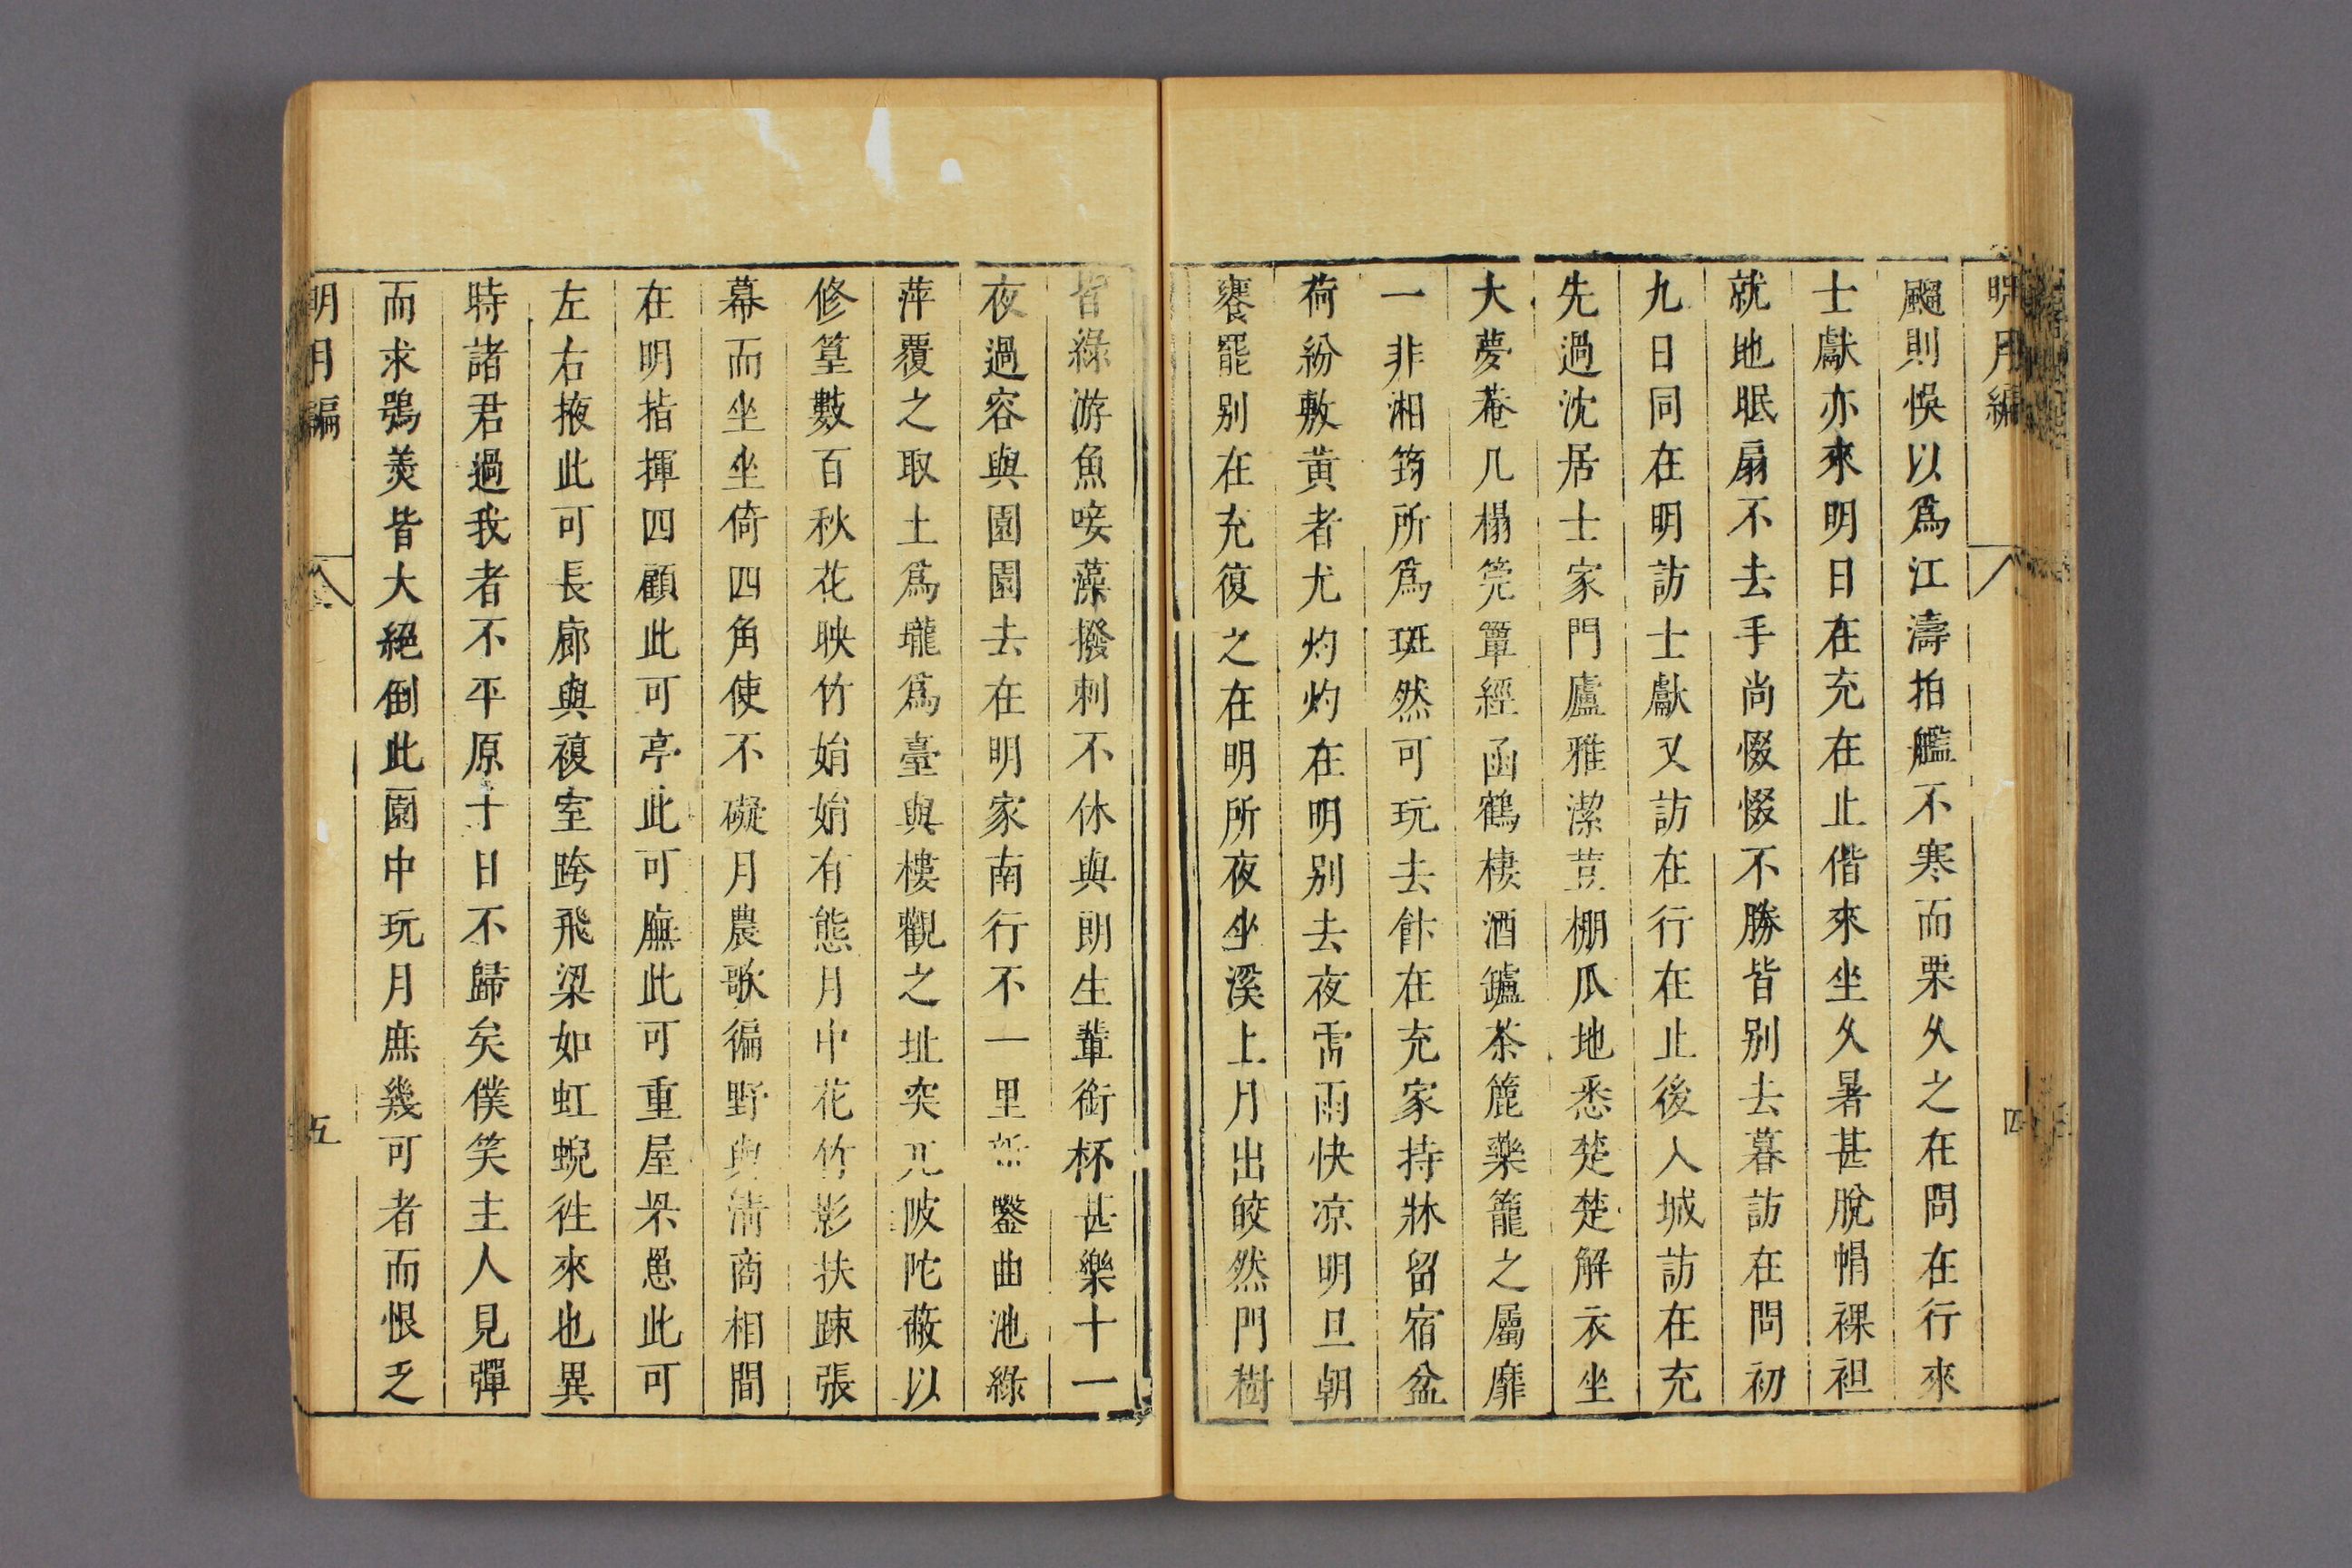 明月編
四
颸則悞以爲江濤拍艦不寒而栗久之在問在行來
士獻亦來明日在充在止偕來坐久暑甚脫帽裸袒
就地眠扇不去手尚惙惙不勝皆别去暮訪在問初
九日同在明訪士獻又訪在行在止後入城訪在充
先過沈居士家門廬雅潔荳棚瓜地悉楚楚解衣坐
大夢菴几榻筦簟經函鶴棲酒鑪茶簏藥籠之屬靡
一非湘筠所爲斑然可玩去餙在充家持牀留宿盆
荷紛敷黄者尤灼灼在明别去夜雷雨快凉明旦朝
饔罷别在充復之在明所夜坐溪上月出皎然門樹
皆綠游魚唼藻撥刺不休與朗生輩銜杯甚樂十一
夜過容與園園去在明家南行不一里新鑿曲池綠
萍覆之取土爲壠爲臺與樓觀之址突兀陂陀蔽以
修篁數百秋花映竹始始有態月中花竹影扶踈張
幕而坐坐倚四角使不礙月農歌徧野與清商相間
在明指揮四顧此可亭此可廡此可重屋罘罳此可
左右掖此可長廊與複室跨飛梁如虹蜺徃來也異
時諸君過我者不平原十日不歸矣僕笑主人見彈
而求鴞羙皆大絕倒此園中玩月庶幾可者而恨乏
明月編
五